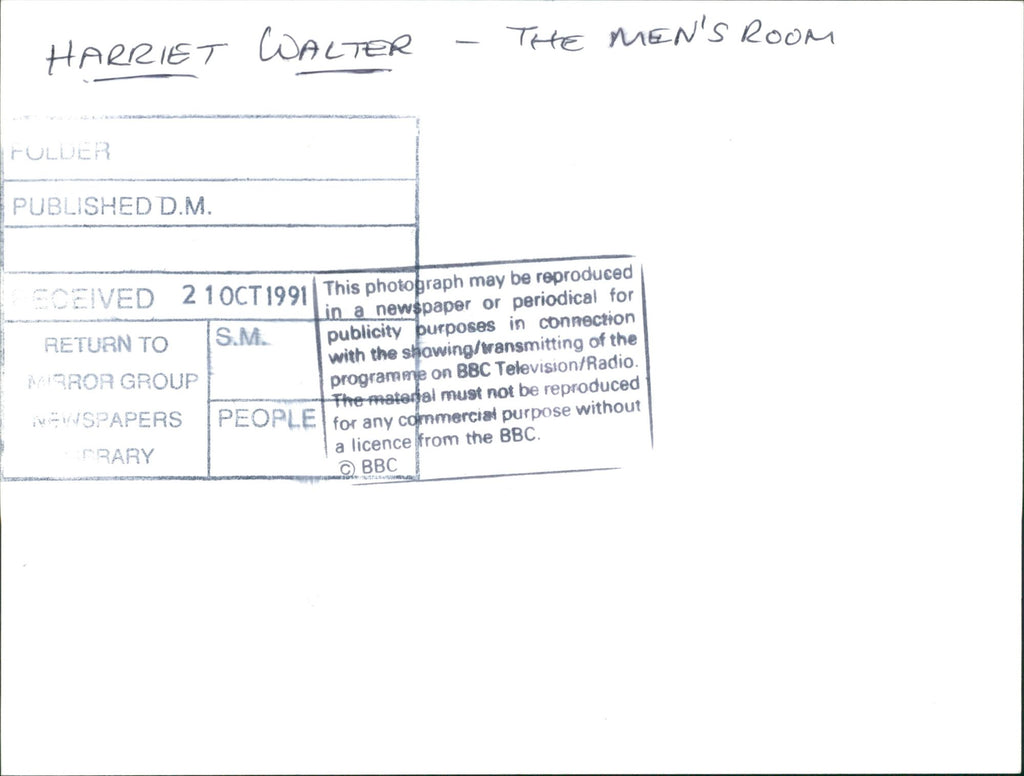 HARRIET WALTER - THE MEN'S ROOM
FOLDER
PUBLISHED D.M.
RECEIVED 21 OCT 1991
RETURN TO
MIRROR GROUP
NEWSPAPERS
LIBRARY
S.M.
PEOPLE
This photograph may be reproduced
in a newspaper or periodical for
publicity purposes in connection
with the showing/transmitting of the
programme on BBC Television/Radio.
The material must not be reproduced
for any commercial purpose without
a licence from the BBC.
© BBC